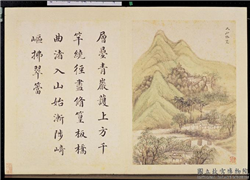 層臺青巖護上方千
竿繞徑盡脩篁板橋
曲渚入山始漸陟崎
嶇拂翠
國立故宮博物院